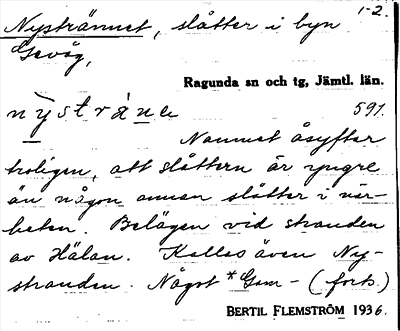 Nystrännet, slåtter i byn 1-2.
Gevåg,
Ragunda sn och tg, Jämtl. län.
nỳstránɛ 591.
Namnet åsyftar
troligen, att slåttern är yngre
än någon annan slåtter i när-
heten. Belägen vid stranden
av Hålan. Kallas även Ny-
stranden. Något *Gam- (forts.)
BERTIL FLEMSTRÖM 1936.